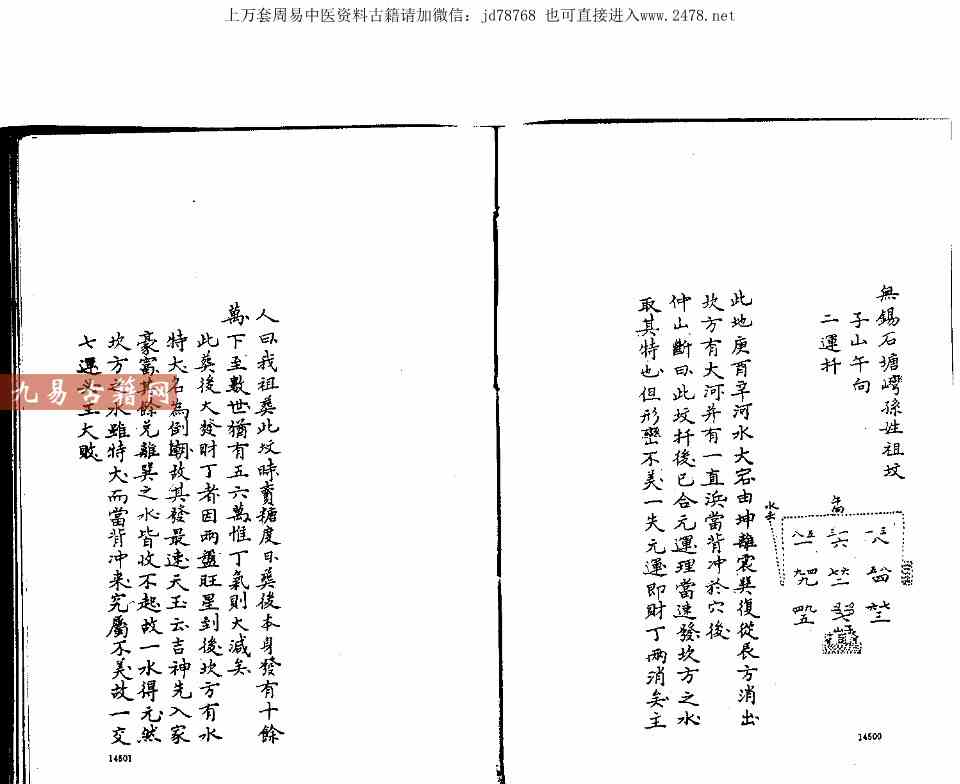 上万套周易中医资料古籍请加微信：jd78768 也可直接进入www.2478.net
無錫石塘灣孫姓祖坟
子山午向
二運扦
此地庚酉辛河水大宕由坤離震巽復從艮方消出
坎方有大河并有一直浜當背冲於穴後
仲山斷曰此坟扦後已合元運理當速發坎方之水
取其特也但形巒不美一失元運即財丁两消矣主
午向
水去
14500
人曰我祖葬此坟時賣糖度日葬後本身發有十餘
萬下至數世猶有五六萬惟丁氣則大減矣
此葬後大發財丁者因两盤旺星到後坎方有水
特大名為倒潮故其發最速天玉云吉神先入家
豪富其餘兌離巽之水皆收不起故一水得元然
坎方之水雖特大而當背冲来究屬不美故一交
七運 大敗
14501
九易古籍网